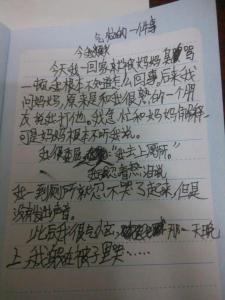 气愤的一件事
今天我一回家就被妈妈骂
一顿,我根本不知道怎么回事。后来我
问妈妈,原来是和我很熟的一个朋
友说我打他。我急忙和妈妈解释
可是妈妈根本不听我说。
我很委屈,“我去上厕所。”
我忍着热泪说
我一到厕所就忍不哭了起来,但是
没有发出声音。
此后我很气愤,那一天晚
上我躲在被子里哭……